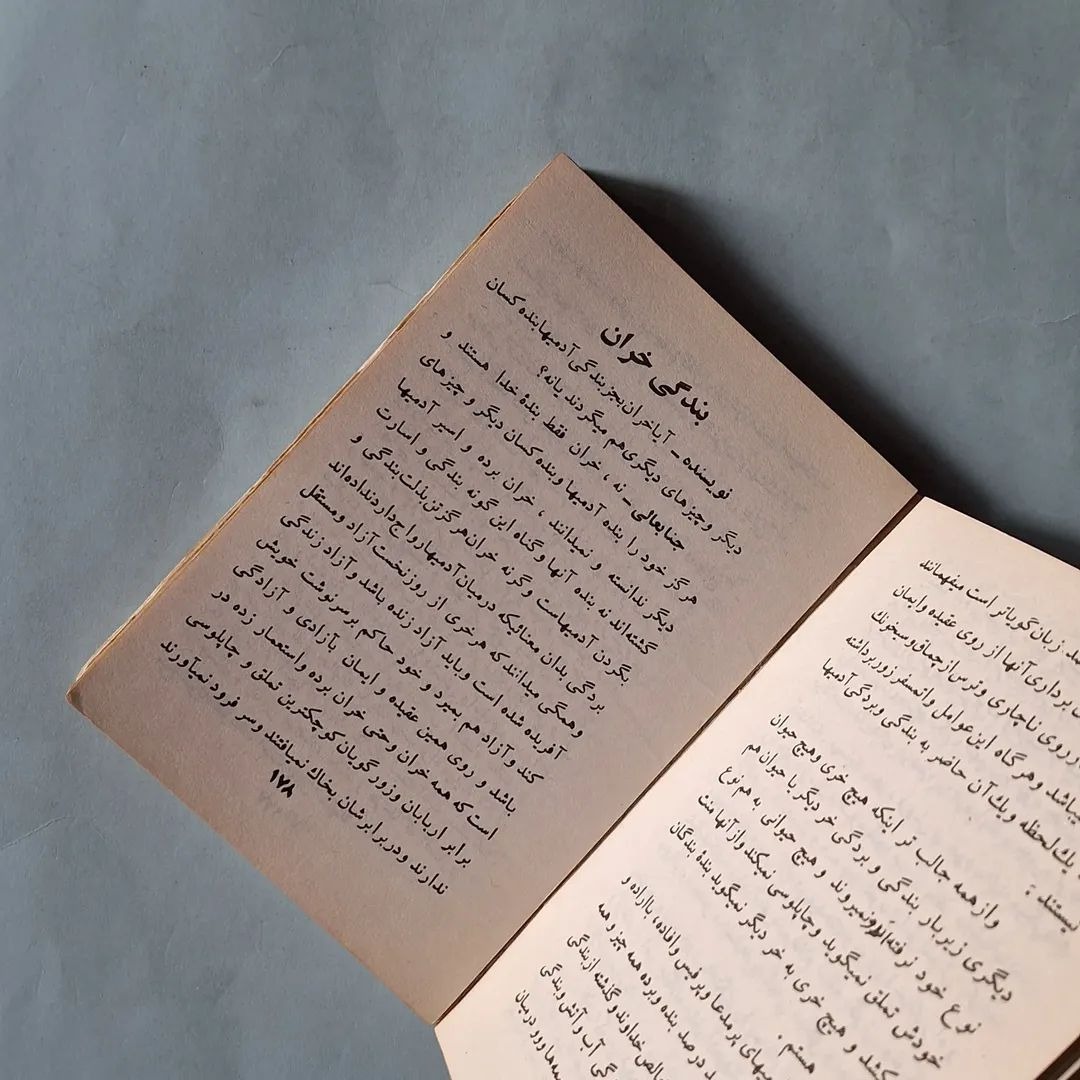 بندگی خران
نویسنده ـ آیا خران بجز بندگی آدمیها بنده کسان
دیگر و چیزهای دیگری هم میگردند یا نه؟
جنابعالی ـ نه ، خران فقط بندهٔ خدا هستند و
هرگز خود را بنده آدمیها و بنده کسان دیگر و چیزهای
دیگر ندانسته و نمیدانند ، خران برده و اسیر آدمیها
گشته‌اند نه بنده آنها و گناه این گونه بندگی و اسارت
بگردن آدمیهاست وگرنه خران هرگز تن بذلت بندگی و
بردگی بدان معنائیکه درمیان آدمیها رواج دارد نداده‌اند
وهمگی میدانند که هر خری از روز نخست آزاد و مستقل
آفریده شده است و باید آزاد زنده باشد و آزاد زندگی
کند و آزاد هم بمیرد و خود حاکم بر سرنوشت خویش
باشد و روی همین عقیده و ایمان بآزادی و آزادگی
است که همه خران وحتی خران برده و استعمار زده در
برابر اربابان وزور گویان کوچکترین تملق و چاپلوسی
ندارند و در برابرشان بخاك نمیافتند و سر فرود نمیآورند
۱۷۸
زبان گویاتر است میفهماند
برداری آنها از روی عقیده و ایمان
از روی ناچاری و ترس از چماق و سیخونك
میباشد و هر گاه این عوامل و اتمسفر زور برداشته
یك لحظه و یك آن حاضر به بندگی و بردگی آدمیها
نیستند :
و از همه جالب تر اینکه هیچ خری و هیچ حیوان
دیگری زیر بار بندگی و بردگی خر دیگر یا حیوان هم
نوع خود نرفته و نمیروند و هیچ حیوانی به هم نوع
خودش تملق نمیگوید و چاپلوسی نمیکند و از آنها منت
نمیکشد و هیچ خری به خر دیگر نمیگوید بندهٔ بندگان
هستم .
پر مدعا و پر فیس و افاده، با اراده و
در صد بنده و برده همه چیز و همه
خالص خداوند و گذشته از بندگی
آب و آتش و بندگی
و در میان